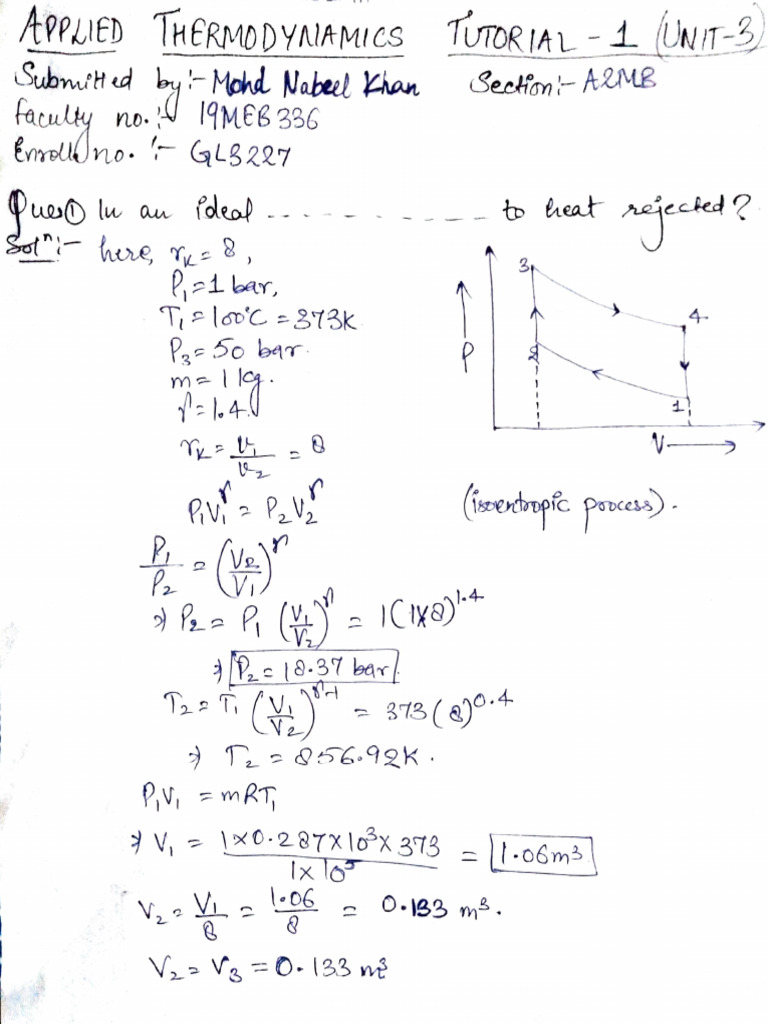 APPLIED THERMODYNAMICS TUTORIAL - 1 (UNIT-3)
Submitted by:- Mohd Nabeel Khan Section:- A2MB
faculty no. :- 19MEB336
Enroll no. :- GL3227
Ques① In an ideal ------------ to heat rejected?
Solⁿ:- here, r_k = 8,
P₁ = 1 bar,
T₁ = 100°C = 373K
P₃ = 50 bar.
m = 1 kg.
γ = 1.4
r_k = v₁/v₂ = 8
P₁V₁^γ = P₂V₂^γ
P₁/P₂ = (V₂/V₁)^γ
⇒ P₂ = P₁ (V₁/V₂)^γ = 1(1×8)^1.4
⇒ P₂ = 18.37 bar
T₂ = T₁ (V₁/V₂)^γ-1 = 373(8)^0.4
⇒ T₂ = 856.92K.
P₁V₁ = mRT₁
⇒ V₁ = 1×0.287×10³×373 / 1×10⁵ = 1.06m³
V₂ = V₁/8 = 1.06/8 = 0.133 m³.
V₂ = V₃ = 0.133 m³
3
4
P
2
1
V
(isoentropic process).